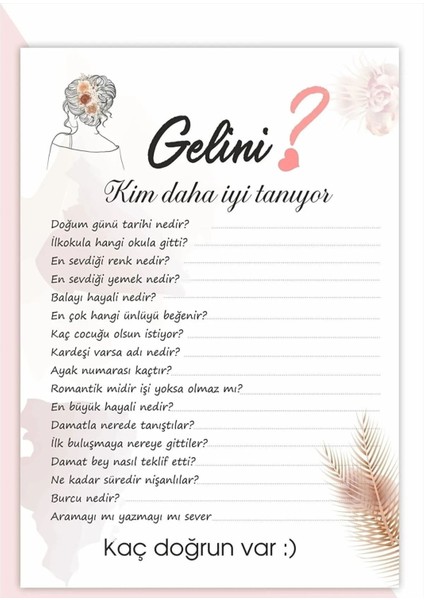 Gelini ?
Kim daha iyi tanıyor
Doğum günü tarihi nedir?
İlkokula hangi okula gitti?
En sevdiği renk nedir?
En sevdiği yemek nedir?
Balayı hayali nedir?
En çok hangi ünlüyü beğenir?
Kaç çocuğu olsun istiyor?
Kardeşi varsa adı nedir?
Ayak numarası kaçtır?
Romantik midir işi yoksa olmaz mı?
En büyük hayali nedir?
Damatla nerede tanıştılar?
İlk buluşmaya nereye gittiler?
Damat bey nasıl teklif etti?
Ne kadar süredir nişanlılar?
Burcu nedir?
Aramayı mı yazmayı mı sever
Kaç doğrun var :)